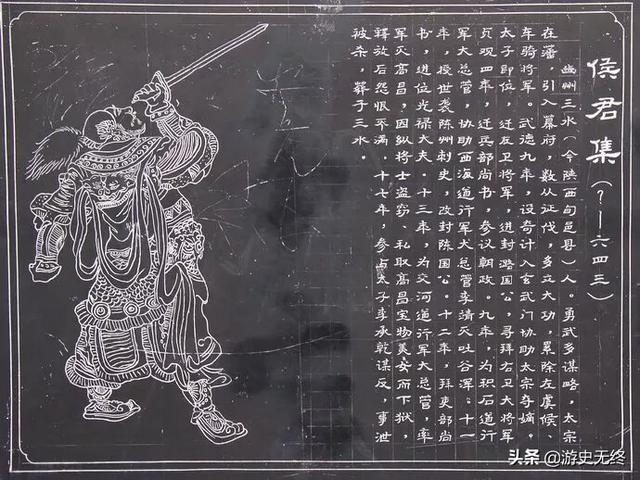 侯君集(?—六四三)
豳州三水(今陕西旬邑县)人。勇武多谋略,太宗
在藩,引入幕府,数从征伐,多立大功,累除左虞候、
车骑将军。武德九年,设奇计入玄武门协助太宗夺嫡,
太子即位,迁左卫将军,进封潞国公,寻拜右卫大将军
贞观四年,迁兵部尚书,参议朝政。九年,为积石道行
军大总管,协助西海道行军大总管李靖灭吐谷浑。十一
年,授世袭陈州刺史,改封陈国公。十二年,拜吏部尚
书,进位光禄大夫。十三年,为交河道行军大总管,率
军灭高昌,因纵将士盗窃、私取高昌宝物美女而下狱,
释放后怨恨不满。十七年,参与太子李承乾谋反,事泄
被杀,葬于三水。
头条 @游史无终